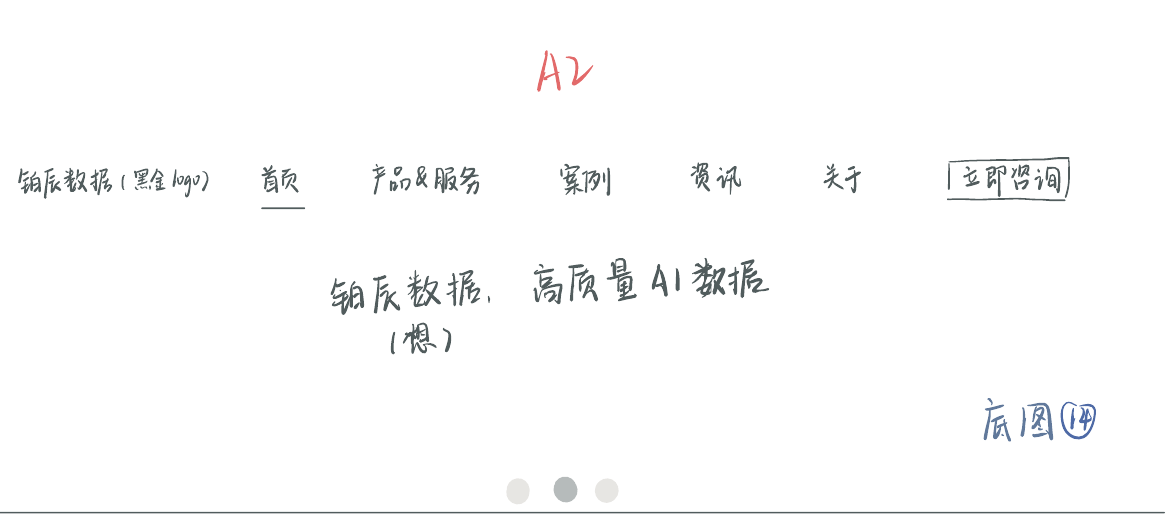 A2
铂辰数据(黑金logo) 首页 产品&服务 案例 资讯 关于 立即咨询
铂辰数据, 高质量AI数据
(想)
底图⑭